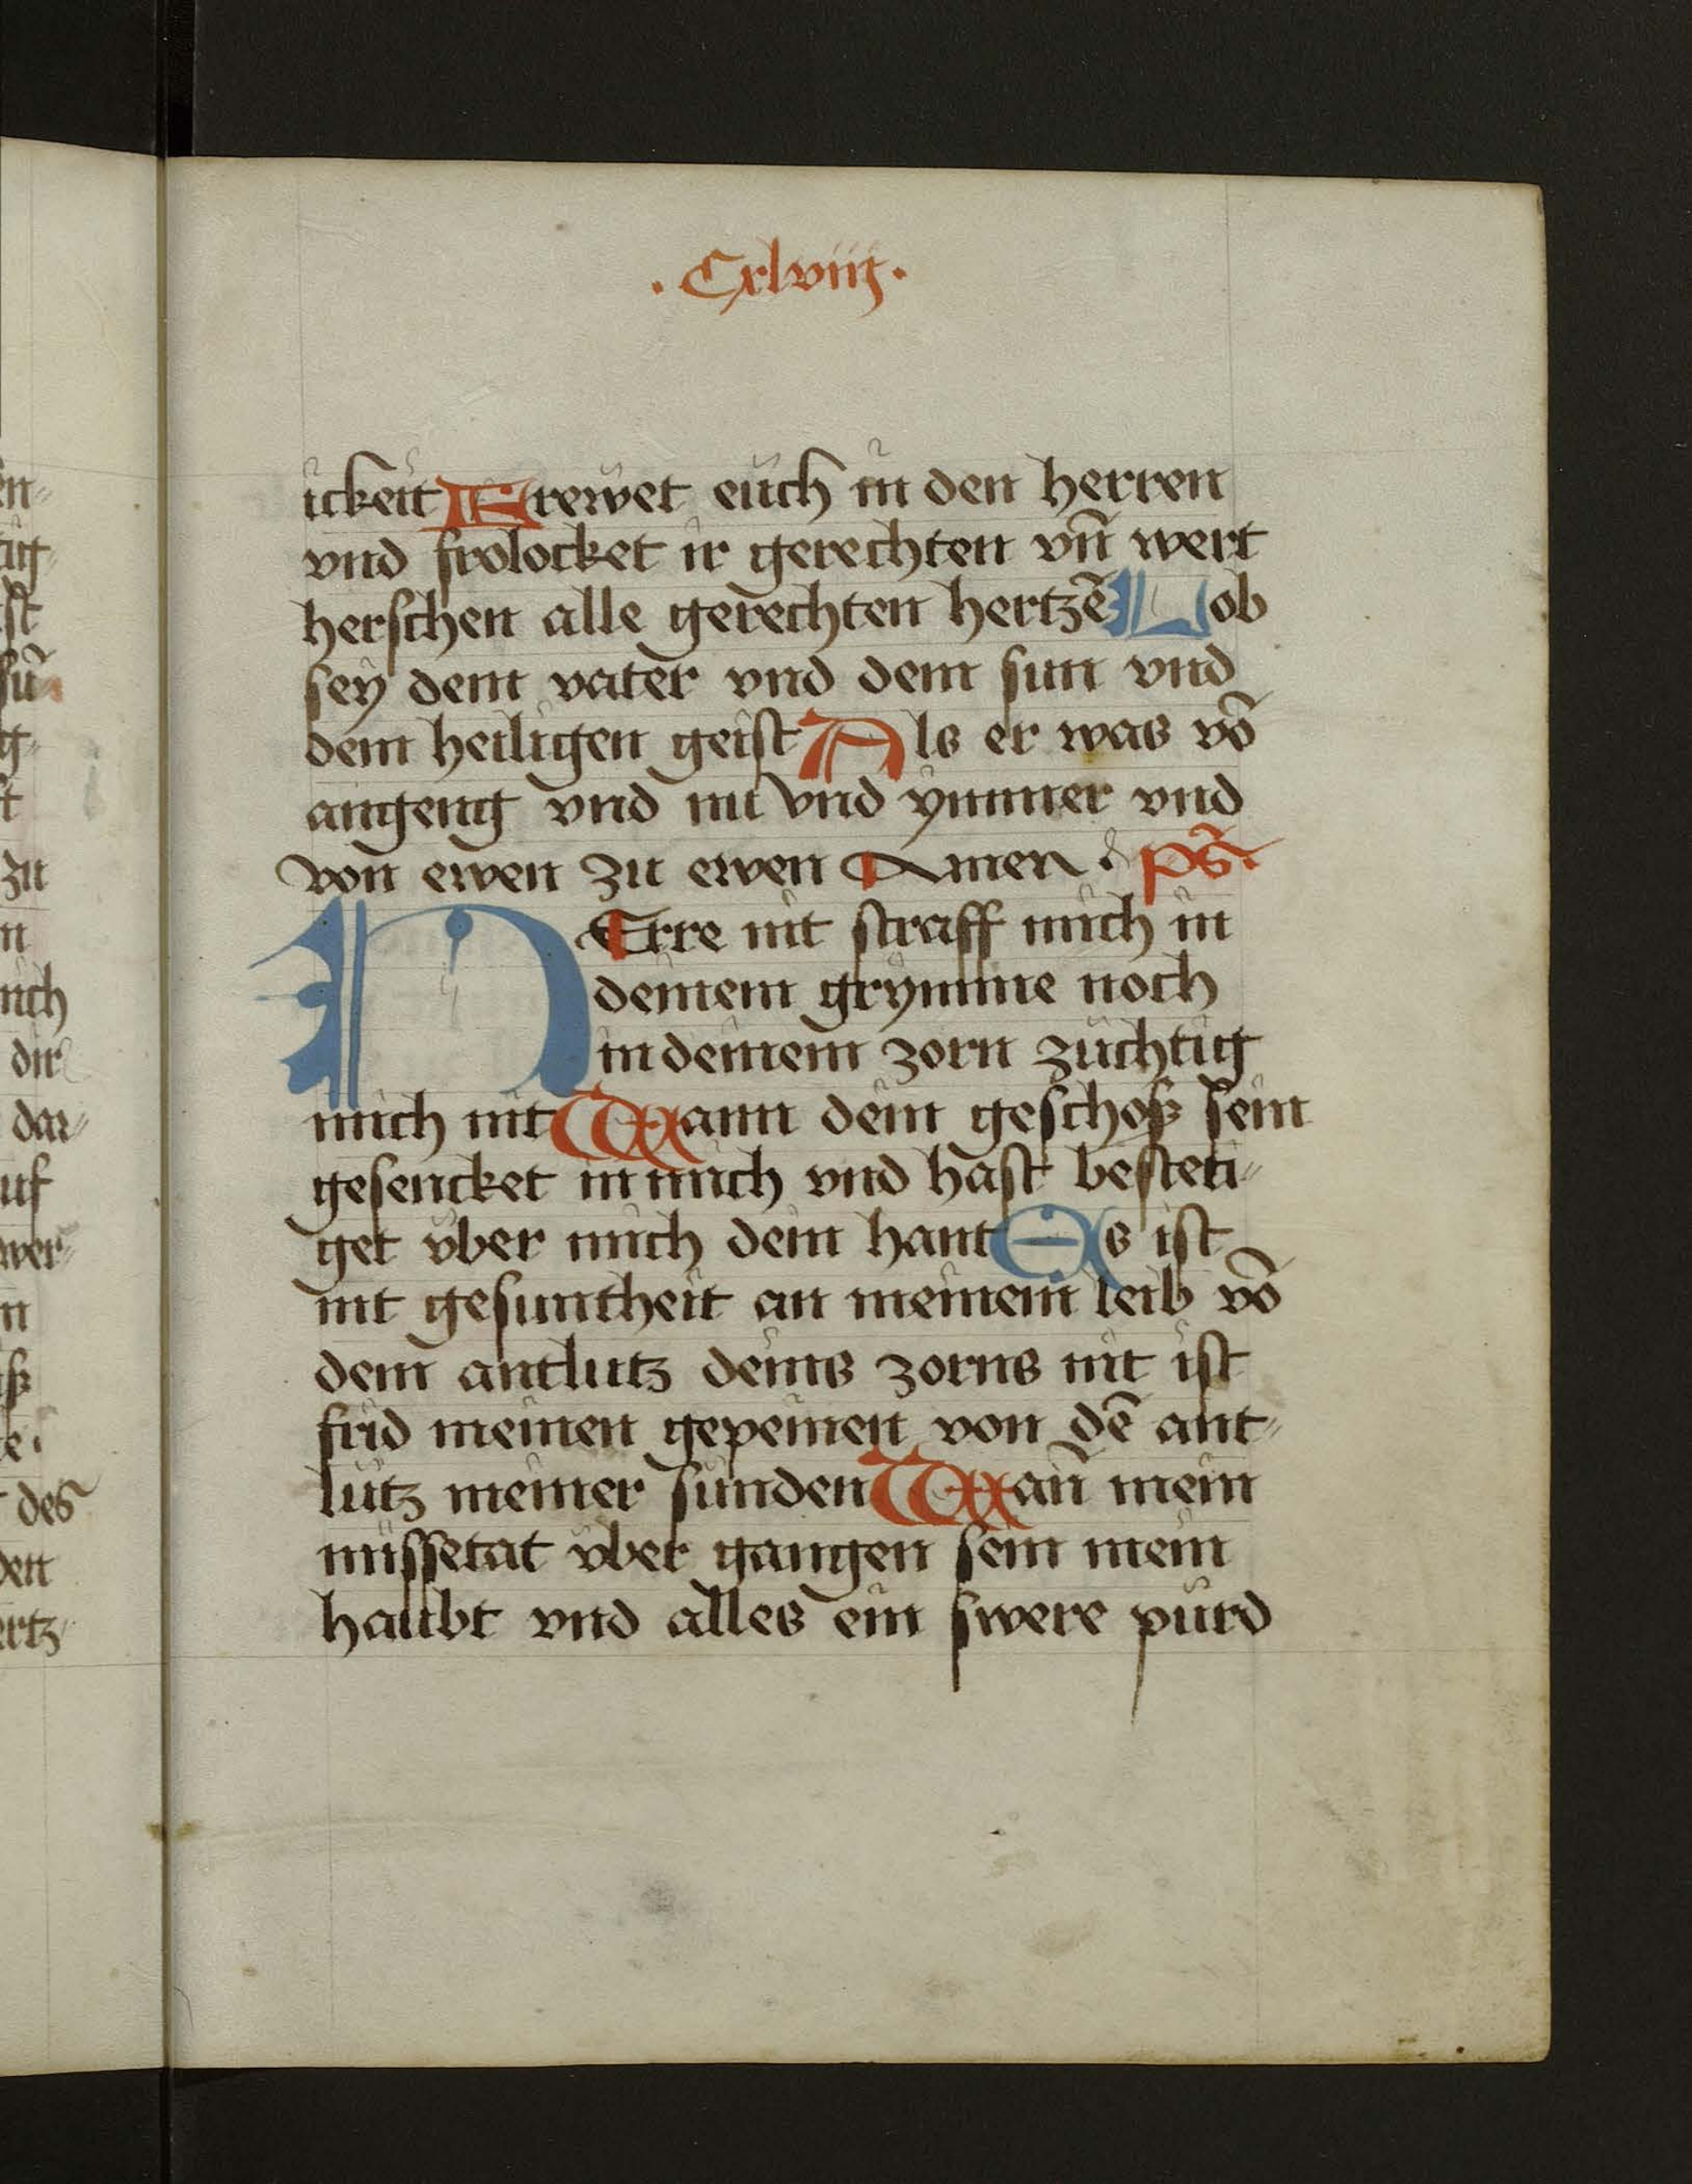 · Cxlviij ·
ickeit Frewet euch in den herren
vnd frolocket ir gerechten vn̄ wert
herschen alle gerechten hertzē Lob
sey dem vater vnd dem sun vnd
dem heiligen geist Als er was vō
angeng vnd nu vnd ymmer vnd
von ewen zu ewen Amen · ps̄·
HErre nit straff mich in
deinem grymme noch
in deinem zorn zuchtig
mich nit Wann dein geschoß sein
gesencket in mich vnd hast besteti-
get vber mich dein hant Es ist
nit gesuntheit an meinem leib vō
dem antlutz deins zorns nit ist
frid meinen gepeinen von dē ant-
lutz meiner sunden Wan̄ mein
missetat vber gangen sein mein
haubt vnd alles ein swere purd